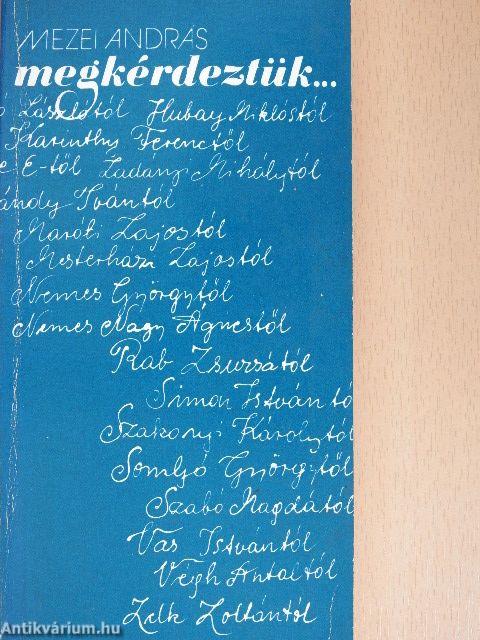 MEZEI ANDRÁS
megkérdeztük...
Lászlótól Hubay Miklóstól
Karinthy Ferenctől
e E-től Ladányi Mihálytól
ándy Ivántól
Maróti Lajostól
Mesterházi Lajostól
Nemes Györgytől
Nemes Nagy Ágnestől
Rab Zsuzsától
Simon Istvántó
Szakonyi Károlytól
Somlyó Györgytől
Szabó Magdától
Vas Istvántól
Végh Antaltól
Zelk Zoltántól
Antikvárium.hu